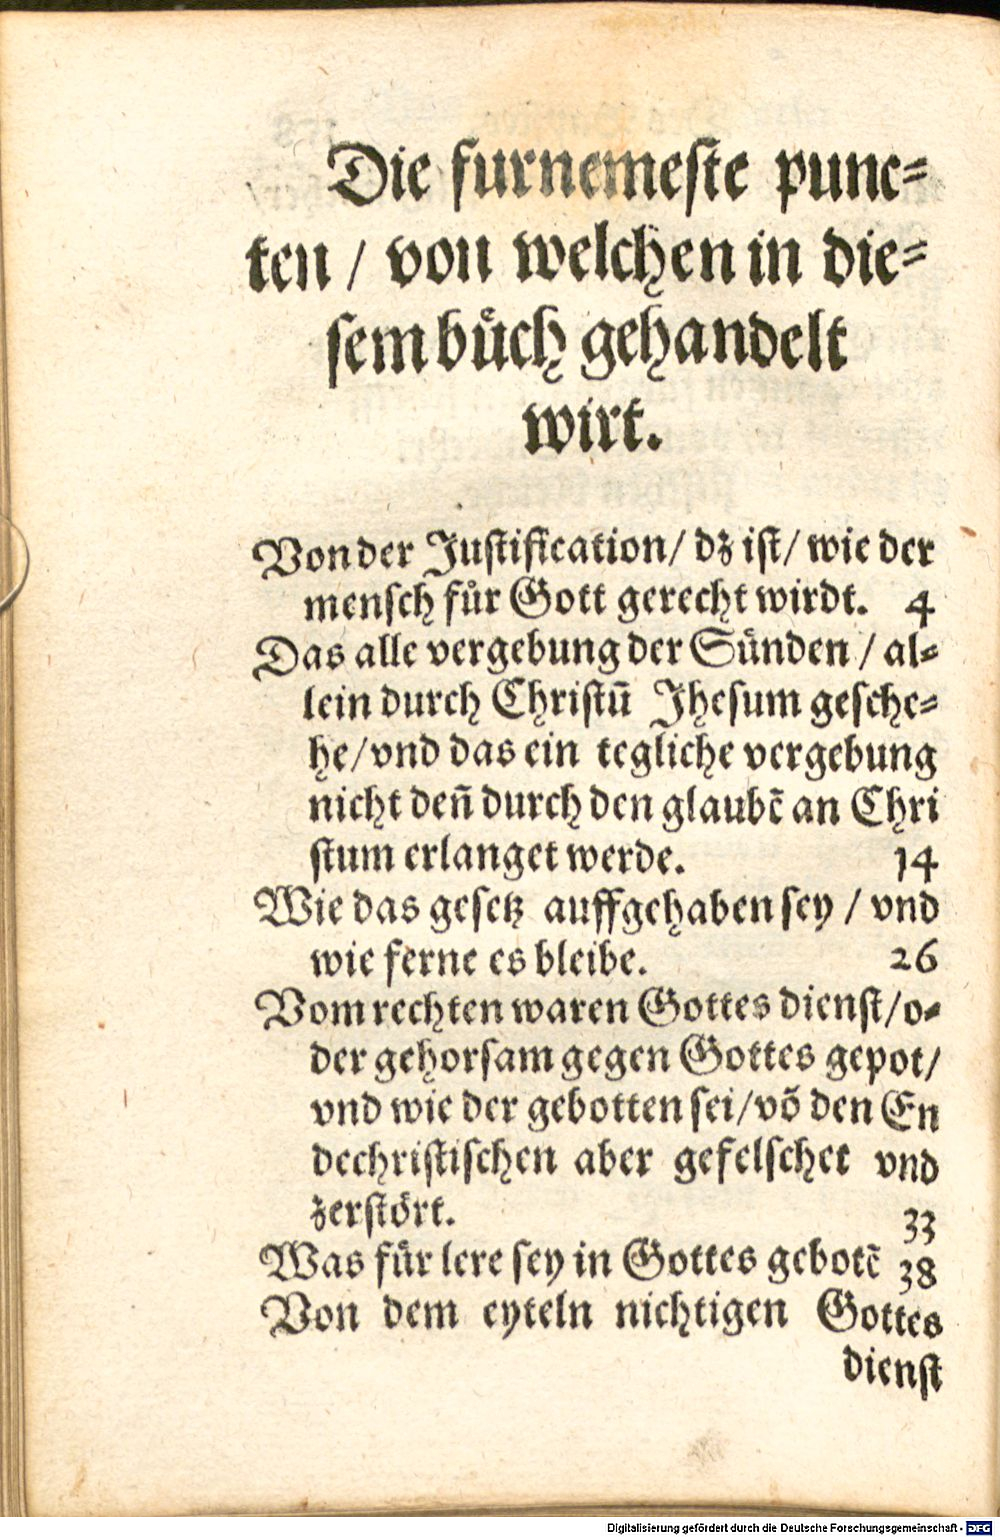 Die furnemeſte punc⸗
ten / von welchen in die⸗
ſem bůch gehandelt
wirt.
Von der Juſtification/ dz iſt/ wie der
menſch fůr Gott gerecht wirdt. 4
Das alle vergebung der Sünden / al⸗
lein durch Chriſtū Jheſum geſche⸗
he/vnd das ein tegliche vergebung
nicht deñ durch den glaubē an Chri
ſtum erlanget werde. 14
Wie das geſetz auffgehaben ſey / vnd
wie ferne es bleibe. 26
Vom rechten waren Gottes dienſt/o⸗
der gehorſam gegen Gottes gepot/
vnd wie der gebotten ſei/vō den En
dechriſtiſchen aber gefelſchet vnd
zerſtört. 33
Was für lere ſey in Gottes gebotē 38
Von dem eyteln nichtigen Gottes
dienſt
Digitalisierung gefördert durch die Deutsche Forschungsgemeinschaft - DFG